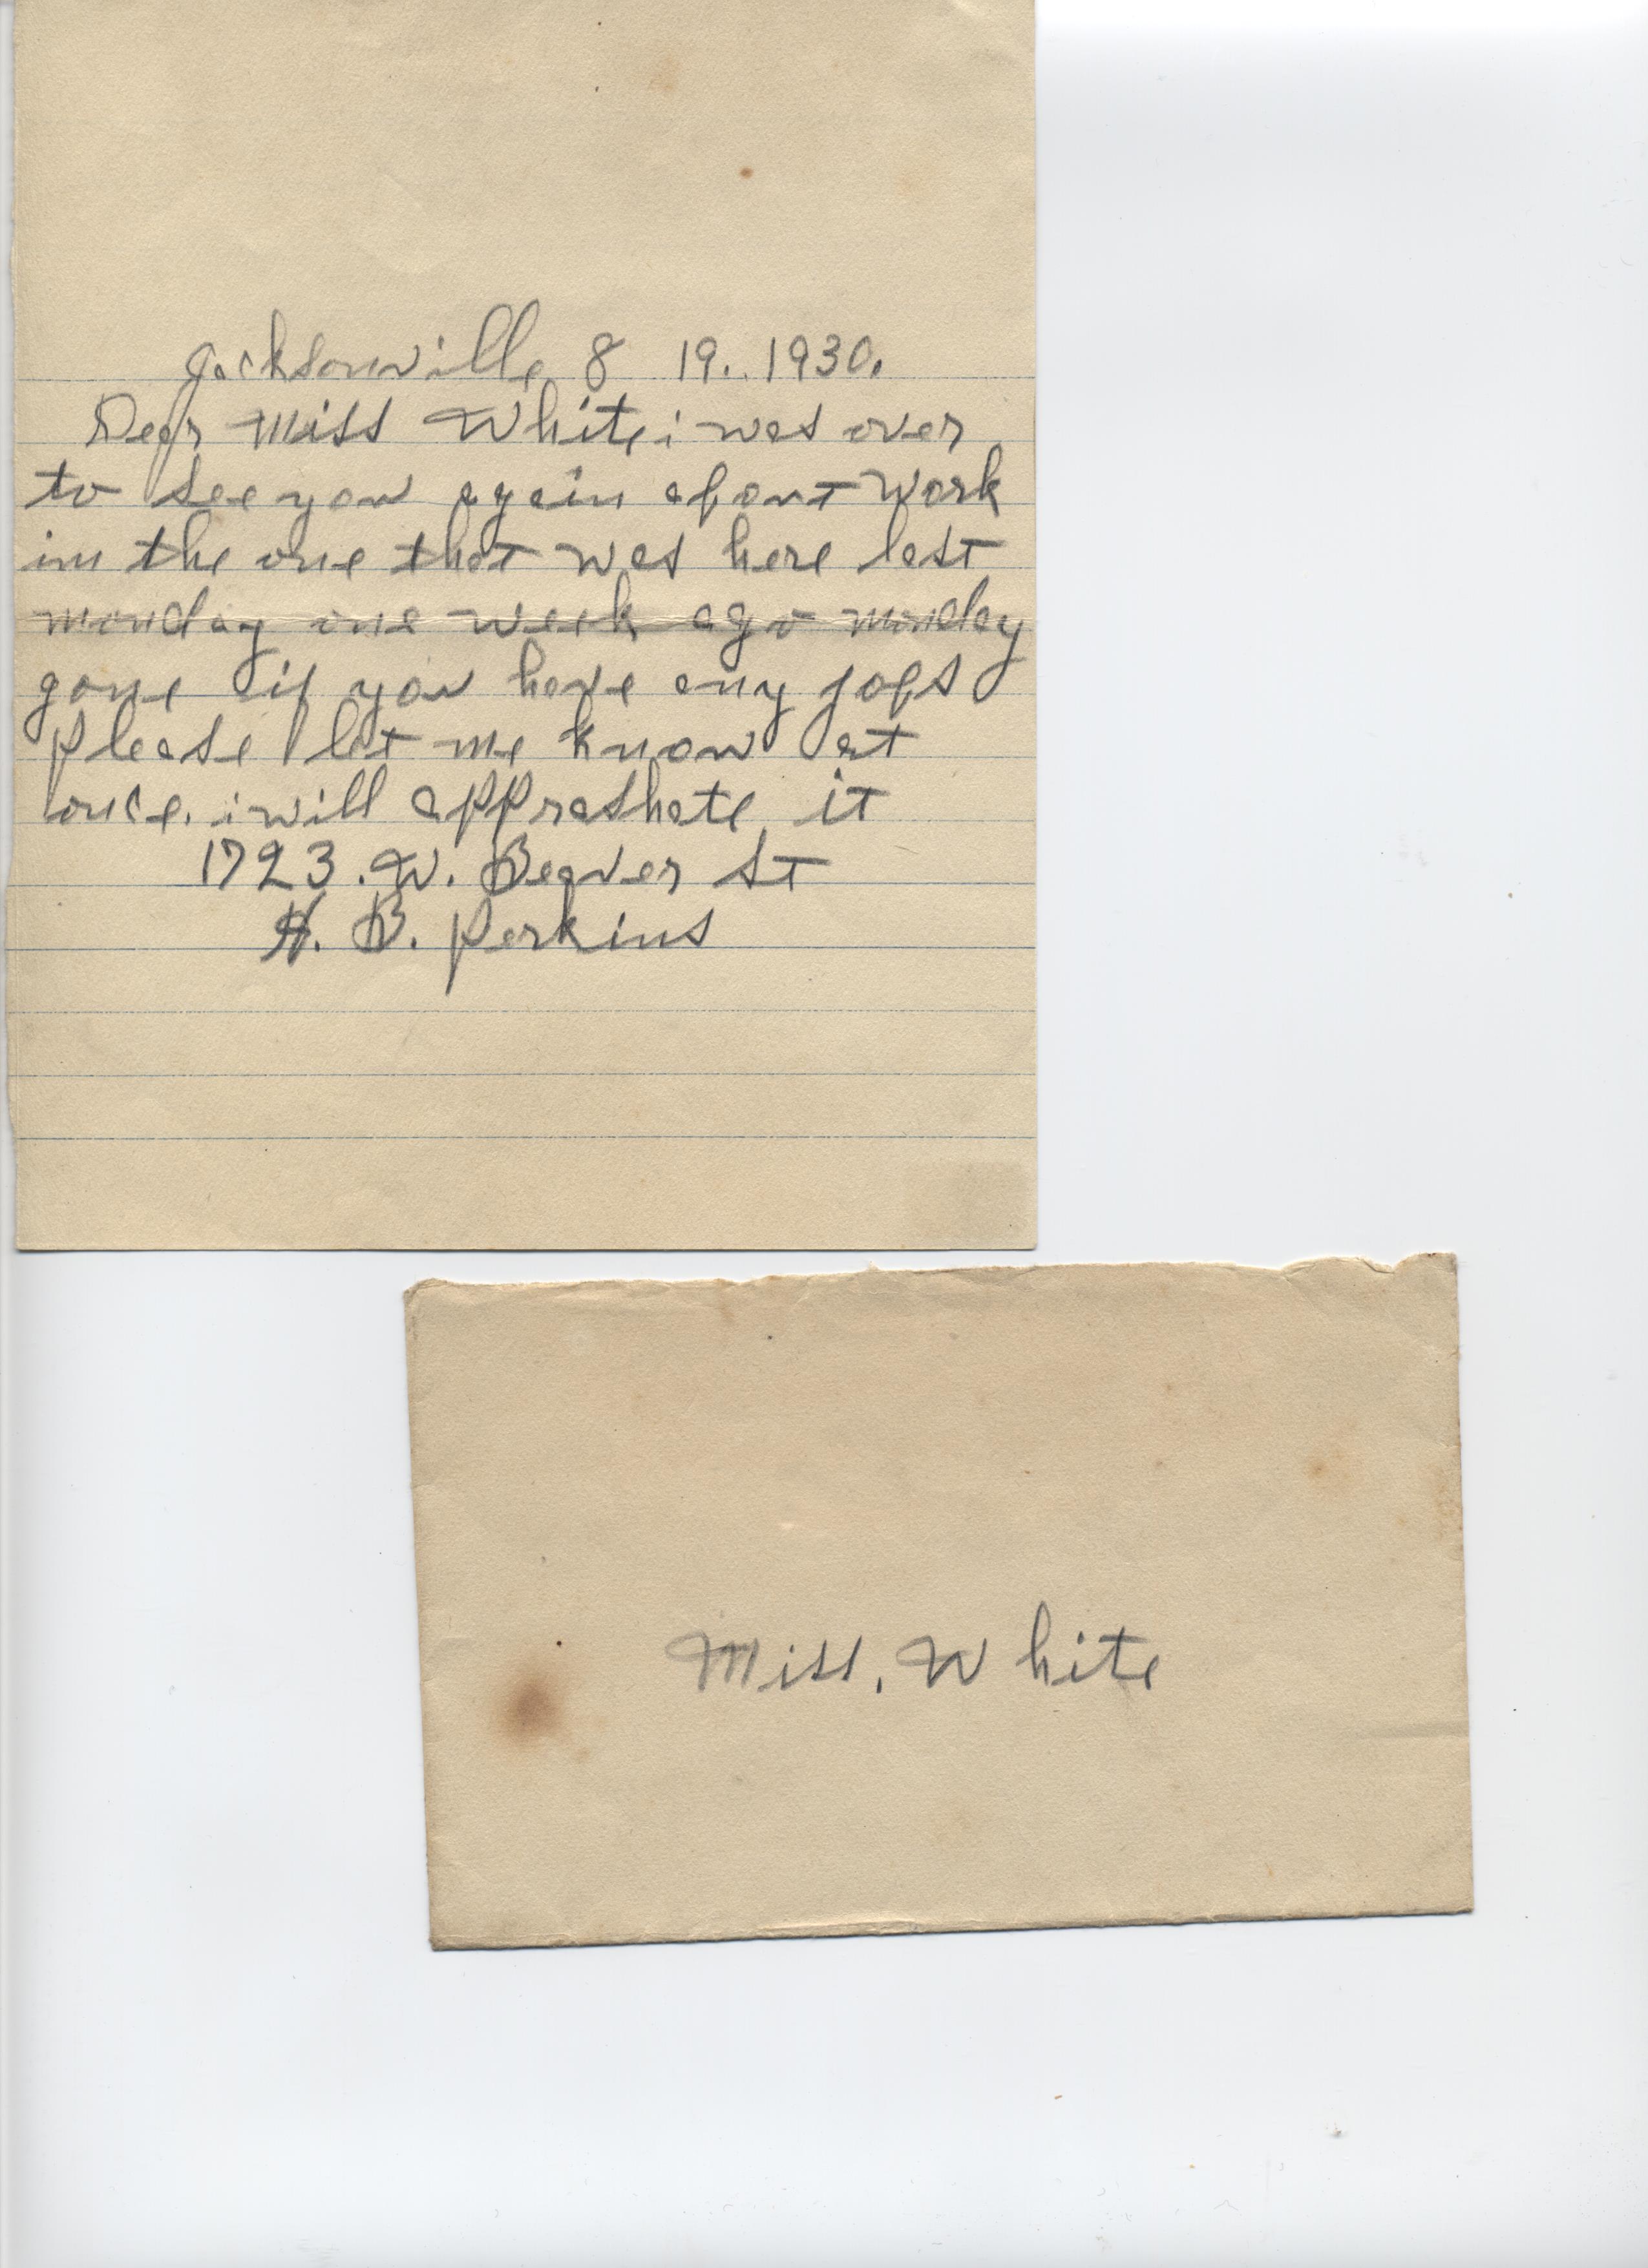 Jacksonville 8 19.. 1930.
Dear Miss White i was over
to see you again about work
im the one that was here last
monday one week ago monday
gone if you have any jobs
please let me know at
once. i will appreshate it
1723. W. Beaver St
H. B. Perkins
Miss. White